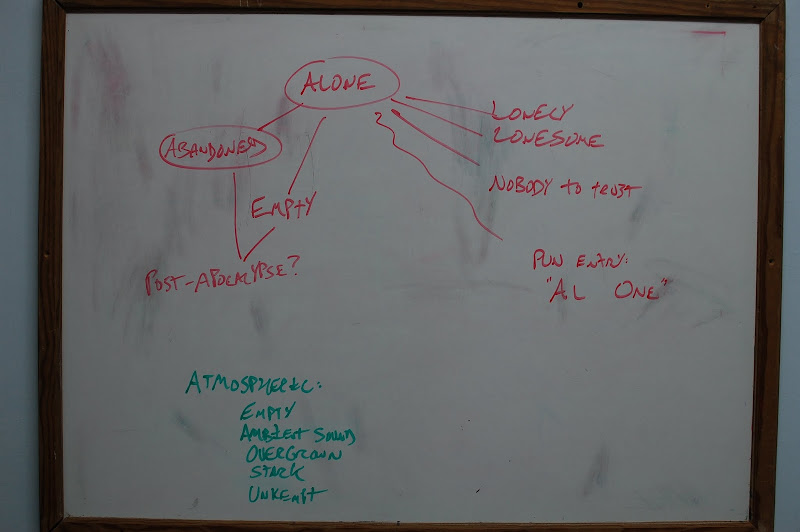 ALONE
ABANDONED
EMPTY
POST-APOCALYPSE?
LONELY
LONESOME
NOBODY to tRUSt
PUN ENTRY:
"AL ONE"
ATMOSPHERIC:
EMPTY
AMBIENT SOUNDS
OVERGROWN
STARK
UNKEMPT